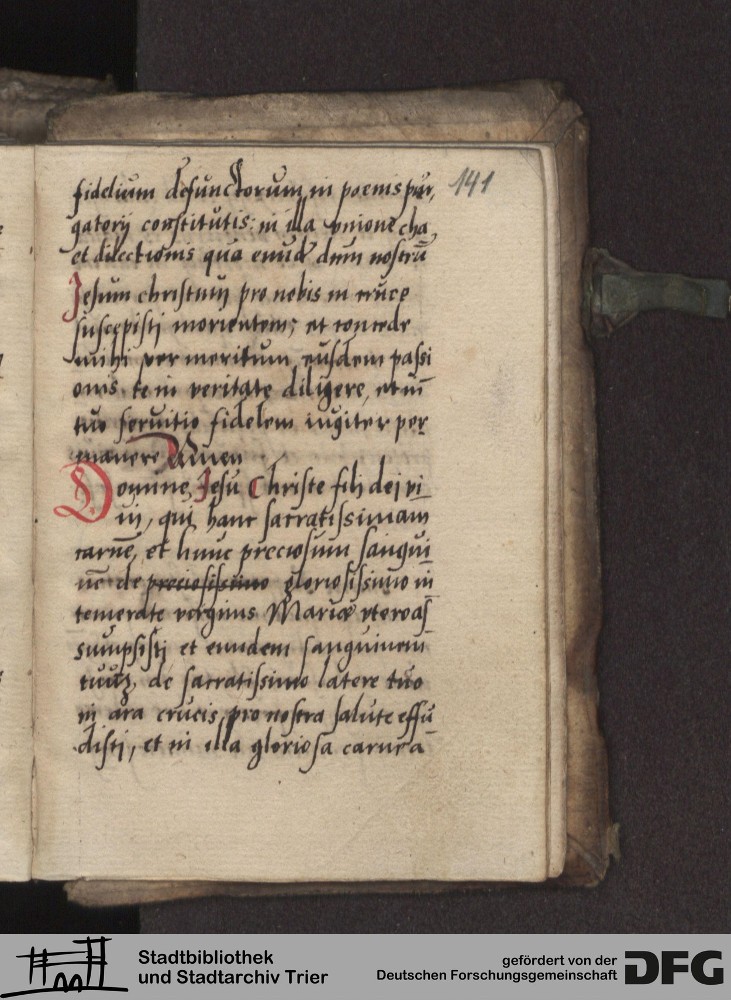 fidelium defunctorum in poenis pur,
gatorij constitutis: in illa vnione cha,
et dilectionis qua eiuud dnm nostrū
Jesum christum pro nobis in cruce
suscepisti morientem; et concede
mihi per meritum eiusdem passi
onis te in veritate diligere, et in
tuo seruitio fidelem iugiter per
manere Amen
Domine Jesu Christe filj dej vi
ui, qui hanc sacratissimam
carnē, et hunc preciosum sangui
nē de preciosissimo gloriosissimo in
temerate virginis Mariæ vtero as
sumpsistj et eundem sanguinem
tuuz de sacratissimo latere tuo
in ara crucis pro nostra salute effu
disti, et in illa gloriosa carne a
141
Stadtbibliothek
und Stadtarchiv Trier
gefördert von der
Deutschen Forschungsgemeinschaft
DFG